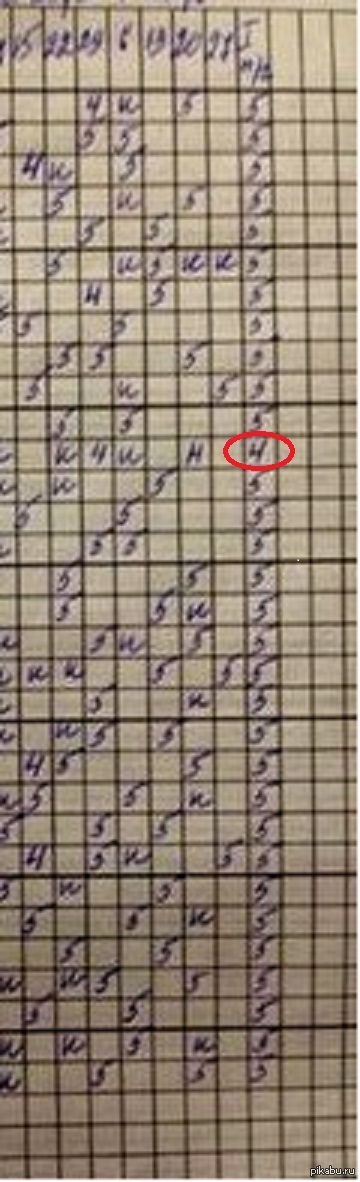 15 22 29 6 13 20 27 I
4 н 5 5
5 5 5
4 н 5 5
5 н 5 5
5 5 5
5 н 5 н н 5
4 5 5
5 5 5
5 5 5 5
5 н 5 5
5 5 5
н 4 н н 4
н н 5 5
5 5 5
5 5 5
5 5 5
5 5 н 5
н 5 н 5 5
н н 5 5 5
5 н 5
н 5 5 5
4 5 5 5
н 5 5 н 5
5 5 5 5
4 5 н 5 5
5 н 5 5
5 5 н 5
5 5 5
н н 5 5 5
5 5 5
н н 5 н 5
н 5 5 5
pikabu.ru